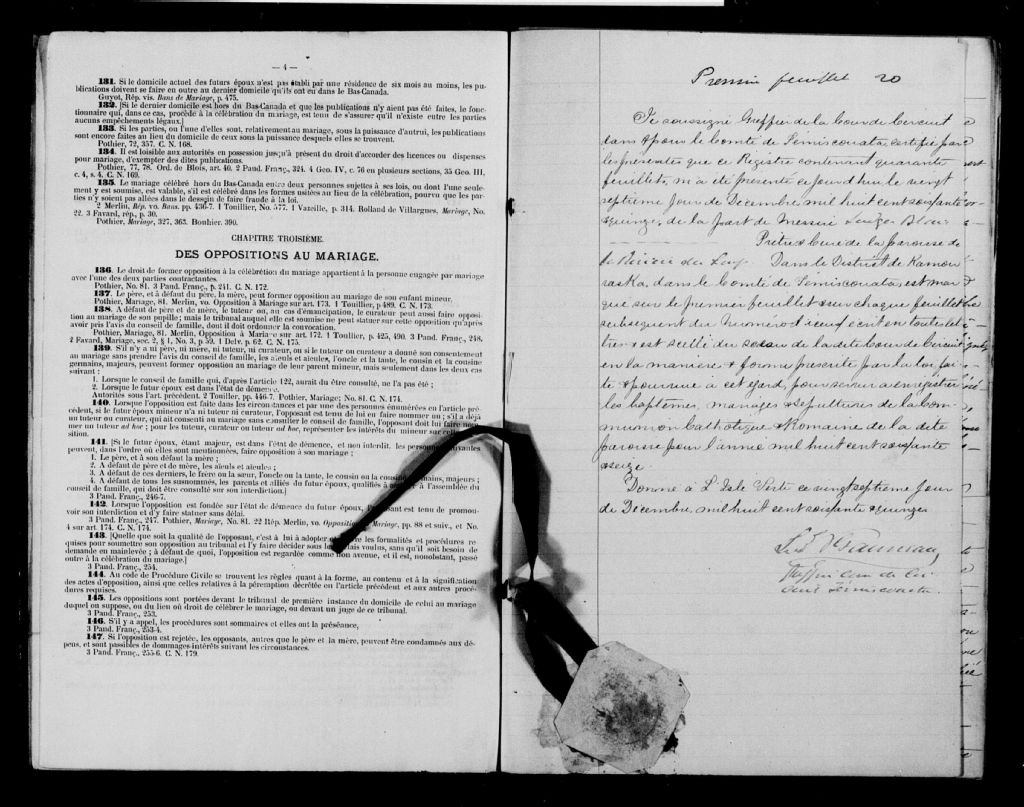 — 4 —
131. Si le domicile actuel des futurs époux n'est pas établi par une résidence de six mois au moins, les pu-
blications doivent se faire en outre au dernier domicile qu'ils ont eu dans le Bas-Canada.
Guyot, Rép. vis. Bans de Mariage, p. 475.
132. [Si le dernier domicile est hors du Bas-Canada et que les publications n'y aient pas été faites, le fonc-
tionnaire qui, dans ce cas, procède à la célébration du mariage, est tenu de s'assurer qu'il n'existe entre les parties
aucuns empêchements légaux.]
133. Si les parties, ou l'une d'elles sont, relativement au mariage, sous la puissance d'autrui, les publications
sont encore faites au lieu du domicile de ceux sous la puissance desquels elles se trouvent.
Pothier, 72, 357. C. N. 168.
134. Il est loisible aux autorités en possession jusqu'à présent du droit d'accorder des licences ou dispenses
pour mariage, d'exempter des dites publications.
Pothier, 77, 78. Ord. de Blois, art. 40. 2 Pand. Franç., 324. 4 Geo. IV, c. 76 en plusieurs sections, 35 Geo. III,
c. 4, s. 4. C. N. 169.
135. Le mariage célébré hors du Bas-Canada entre deux personnes sujettes à ses lois, ou dont l'une seule-
ment y est soumise, est valable, s'il est célébré dans les formes usitées au lieu de la célébration, pourvu que les par-
ties n'y soient pas allées dans le dessein de faire fraude à la loi.
2 Merlin, Rép. vo. Bans. pp. 436-7. 1 Touillier, No. 577. 1 Vazeille, p. 314. Rolland de Villargues, Mariage, No.
22. 3 Favard, rép., p. 30.
Pothier, Mariage, 327, 363. Bouhier. 390.
CHAPITRE TROISIÈME.
DES OPPOSITIONS AU MARIAGE.
136. Le droit de former opposition à la célébration du mariage appartient à la personne engagée par mariage
avec l'une des deux parties contractantes.
Pothier, No. 81. 3 Pand. Franç., p. 241. C. N. 172.
137. Le père, et à défaut du père, la mère, peut former opposition au mariage de son enfant mineur.
Pothier, Mariage, 81. Merlin, vo. Opposition à Mariage sur art. 173. 1 Touillier, p. 489. C. N. 173.
138. A défaut de père et de mère, le tuteur ou, au cas d'émancipation, le curateur peut aussi faire opposi-
tion au mariage de son pupille ; mais le tribunal auquel elle est soumise ne peut statuer sur cette opposition qu'après
avoir pris l'avis du conseil de famille, dont il doit ordonner la convocation.
Pothier, Mariage, 81. Merlin, Opposition à Mariage sur art. 172. 1 Toullier, p. 425, 490. 3 Pand. Franç., 248.
2 Favard, Mariage, sec. 2, § 1, No. 3, p. 59. 1 Delv. p. 62. C. N. 175.
139. S'il n'y a ni père, ni mère, ni tuteur, ni curateur, ou si le tuteur ou curateur a donné son consentement
au mariage sans prendre l'avis du conseil de famille, les aïeuls et aïeules, l'oncle et la tante, le cousin et la cousine
germains, majeurs, peuvent former opposition au mariage de leur parent mineur, mais seulement dans les deux cas
suivant :
1. Lorsque le conseil de famille qui, d'après l'article 122, aurait du être consulté, ne l'a pas été ;
2. Lorsque le futur époux est dans l'état de démence.
Autorités sous l'art. précédent. 2 Touiller, pp. 446-7. Pothier, Mariage; No. 81. C. N. 174.
140. Lorsque l'opposition est faite dans les circonstances et par une des personnes énumérées en l'article pré-
cédent, si le futur époux mineur n'a ni tuteur ni curateur, l'opposant est tenu de lui en faire nommer un ; s'il a déjà
un tuteur ou curateur, qui ait consenti au mariage sans consulter le conseil de famille, l'opposant doit lui faire nom-
mer un tuteur ad hoc ; pour les tuteur, curateur ou tuteur ad hoc, représenter les intérêts du mineur sur cette oppo-
sition.
141. [Si le futur époux, étant majeur, est dans l'état de démence, et non interdit, les personnes suivantes
peuvent, dans l'ordre où elles sont mentionnées, faire opposition à son mariage ;
1. Le père, et à son défaut la mère ;
2. A défaut de père et de mère, les aïeuls et aïeules ;
3. A défaut de ces derniers, le frère ou la sœur, l'oncle ou la tante, le cousin ou la cousine germains, majeurs ;
4. A défaut de tous les susnommés, les parents et alliés du futur époux, qualifiés à assister à l'assemblée du
conseil de famille, qui doit être consulté sur son interdiction.]
3 Pand. Franç., 246-7.
142. Lorsque l'opposition est fondée sur l'état de démence du futur époux, l'opposant est tenu de promou-
voir son interdiction et d'y faire statuer sans délai.
3 Pand. Franç., 247. Pothier, Mariage, No. 81. 22 Rép. Merlin, vo. Opposition à Mariage, pp. 88 et suiv., et No.
4 sur art. 174. C. N. 174.
143. [Quelle que soit la qualité de l'opposant, c'est à lui à adopter et suivre les formalités et procédures re-
quises pour soumettre son opposition au tribunal et l'y faire décider sous les délais voulus, sans qu'il soit besoin de
demande en mainlevée ; à défaut de quoi, l'opposition est regardée comme non avenue, et il est, nonobstant, passé
outre à la célébration du mariage.]
3 Pand. Franç., 254.
144. Au code de Procédure Civile se trouvent les règles quant à la forme, au contenu et à la signification
des actes d'opposition, ainsi que celles relatives à la péremption décrétée en l'article précédent et aux autres procé-
dures requises.
145. Les oppositions sont portées devant le tribunal de première instance du domicile de celui au mariage
duquel on suppose, ou du lieu où droit de célébrer le mariage, ou devant un juge de ce tribunal.
3 Pand. Franç., 253.
146. S'il y a appel, les procédures sont sommaires et elles ont la préséance,
3 Pand. Franç., 253-4.
147. Si l'opposition est rejetée, les opposants, autres que le père et la mère, peuvent être condamnés aux dé-
pens, et sont passibles de dommages-intérêts suivant les circonstances.
3 Pand. Franç., 255-6. C. N. 179.
Premier feuillet 20
Je soussigné Greffier de la Cour de Circuit
dans & pour le comté de Témiscouata, certifie par
les présentes que ce Registre contenant quarante
feuillets, m'a été présenté ce jourd'hui le vingt
septième jour de Décembre mil huit cent soixante
& quinze, de la part de Messire Blais
Prêtre & Curé de la paroisse de
la Rivière du Loup Dans le District de Kamou
raska, dans le Comté de Témiscouata, est mar
qué sur le premier feuillet & sur chaque feuillet
subséquent du Numéro d'iceux écrit en toutes let
tres & est scellé du sceau de la dite Cour de Circuit
en la manière & forme prescrite par la loi fai
te & pourvue à cet égard, pour servir à enregistrer
les baptêmes, mariages & sépultures de la Com
munion Catholique & Romaine de la dite
paroisse pour l'année mil huit cent soixante
& seize.
Donné à L'Isle Verte ce vingt septième jour
de Décembre, mil huit cent soixante & quinze